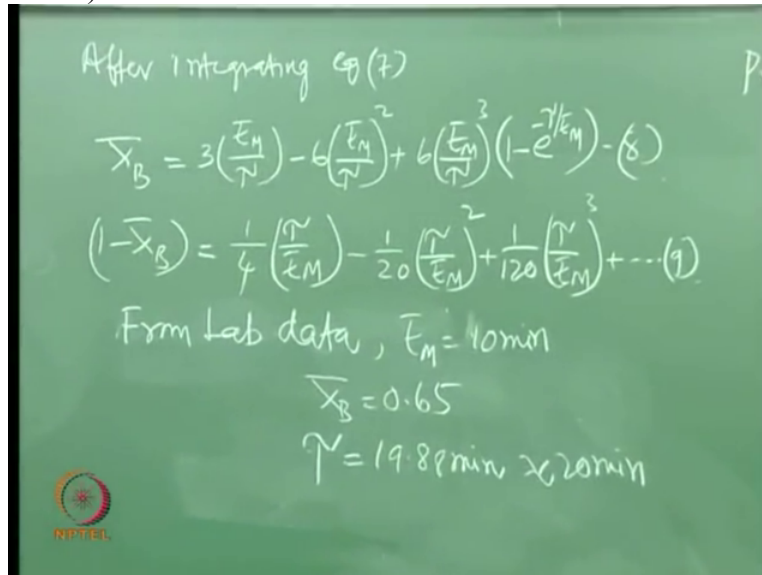 After integrating eq (7)
P
X̄_B = 3(t̄_M/τ) - 6(t̄_M/τ)² + 6(t̄_M/τ)³(1 - e^(-τ/t̄_M)) - (8)
(1 - X̄_B) = 1/4 (τ/t̄_M) - 1/20 (τ/t̄_M)² + 1/120 (τ/t̄_M)³ + --- (9)
From Lab data, t̄_M = 10 min
X̄_B = 0.65
τ = 19.88 min ≈ 20 min
NPTEL